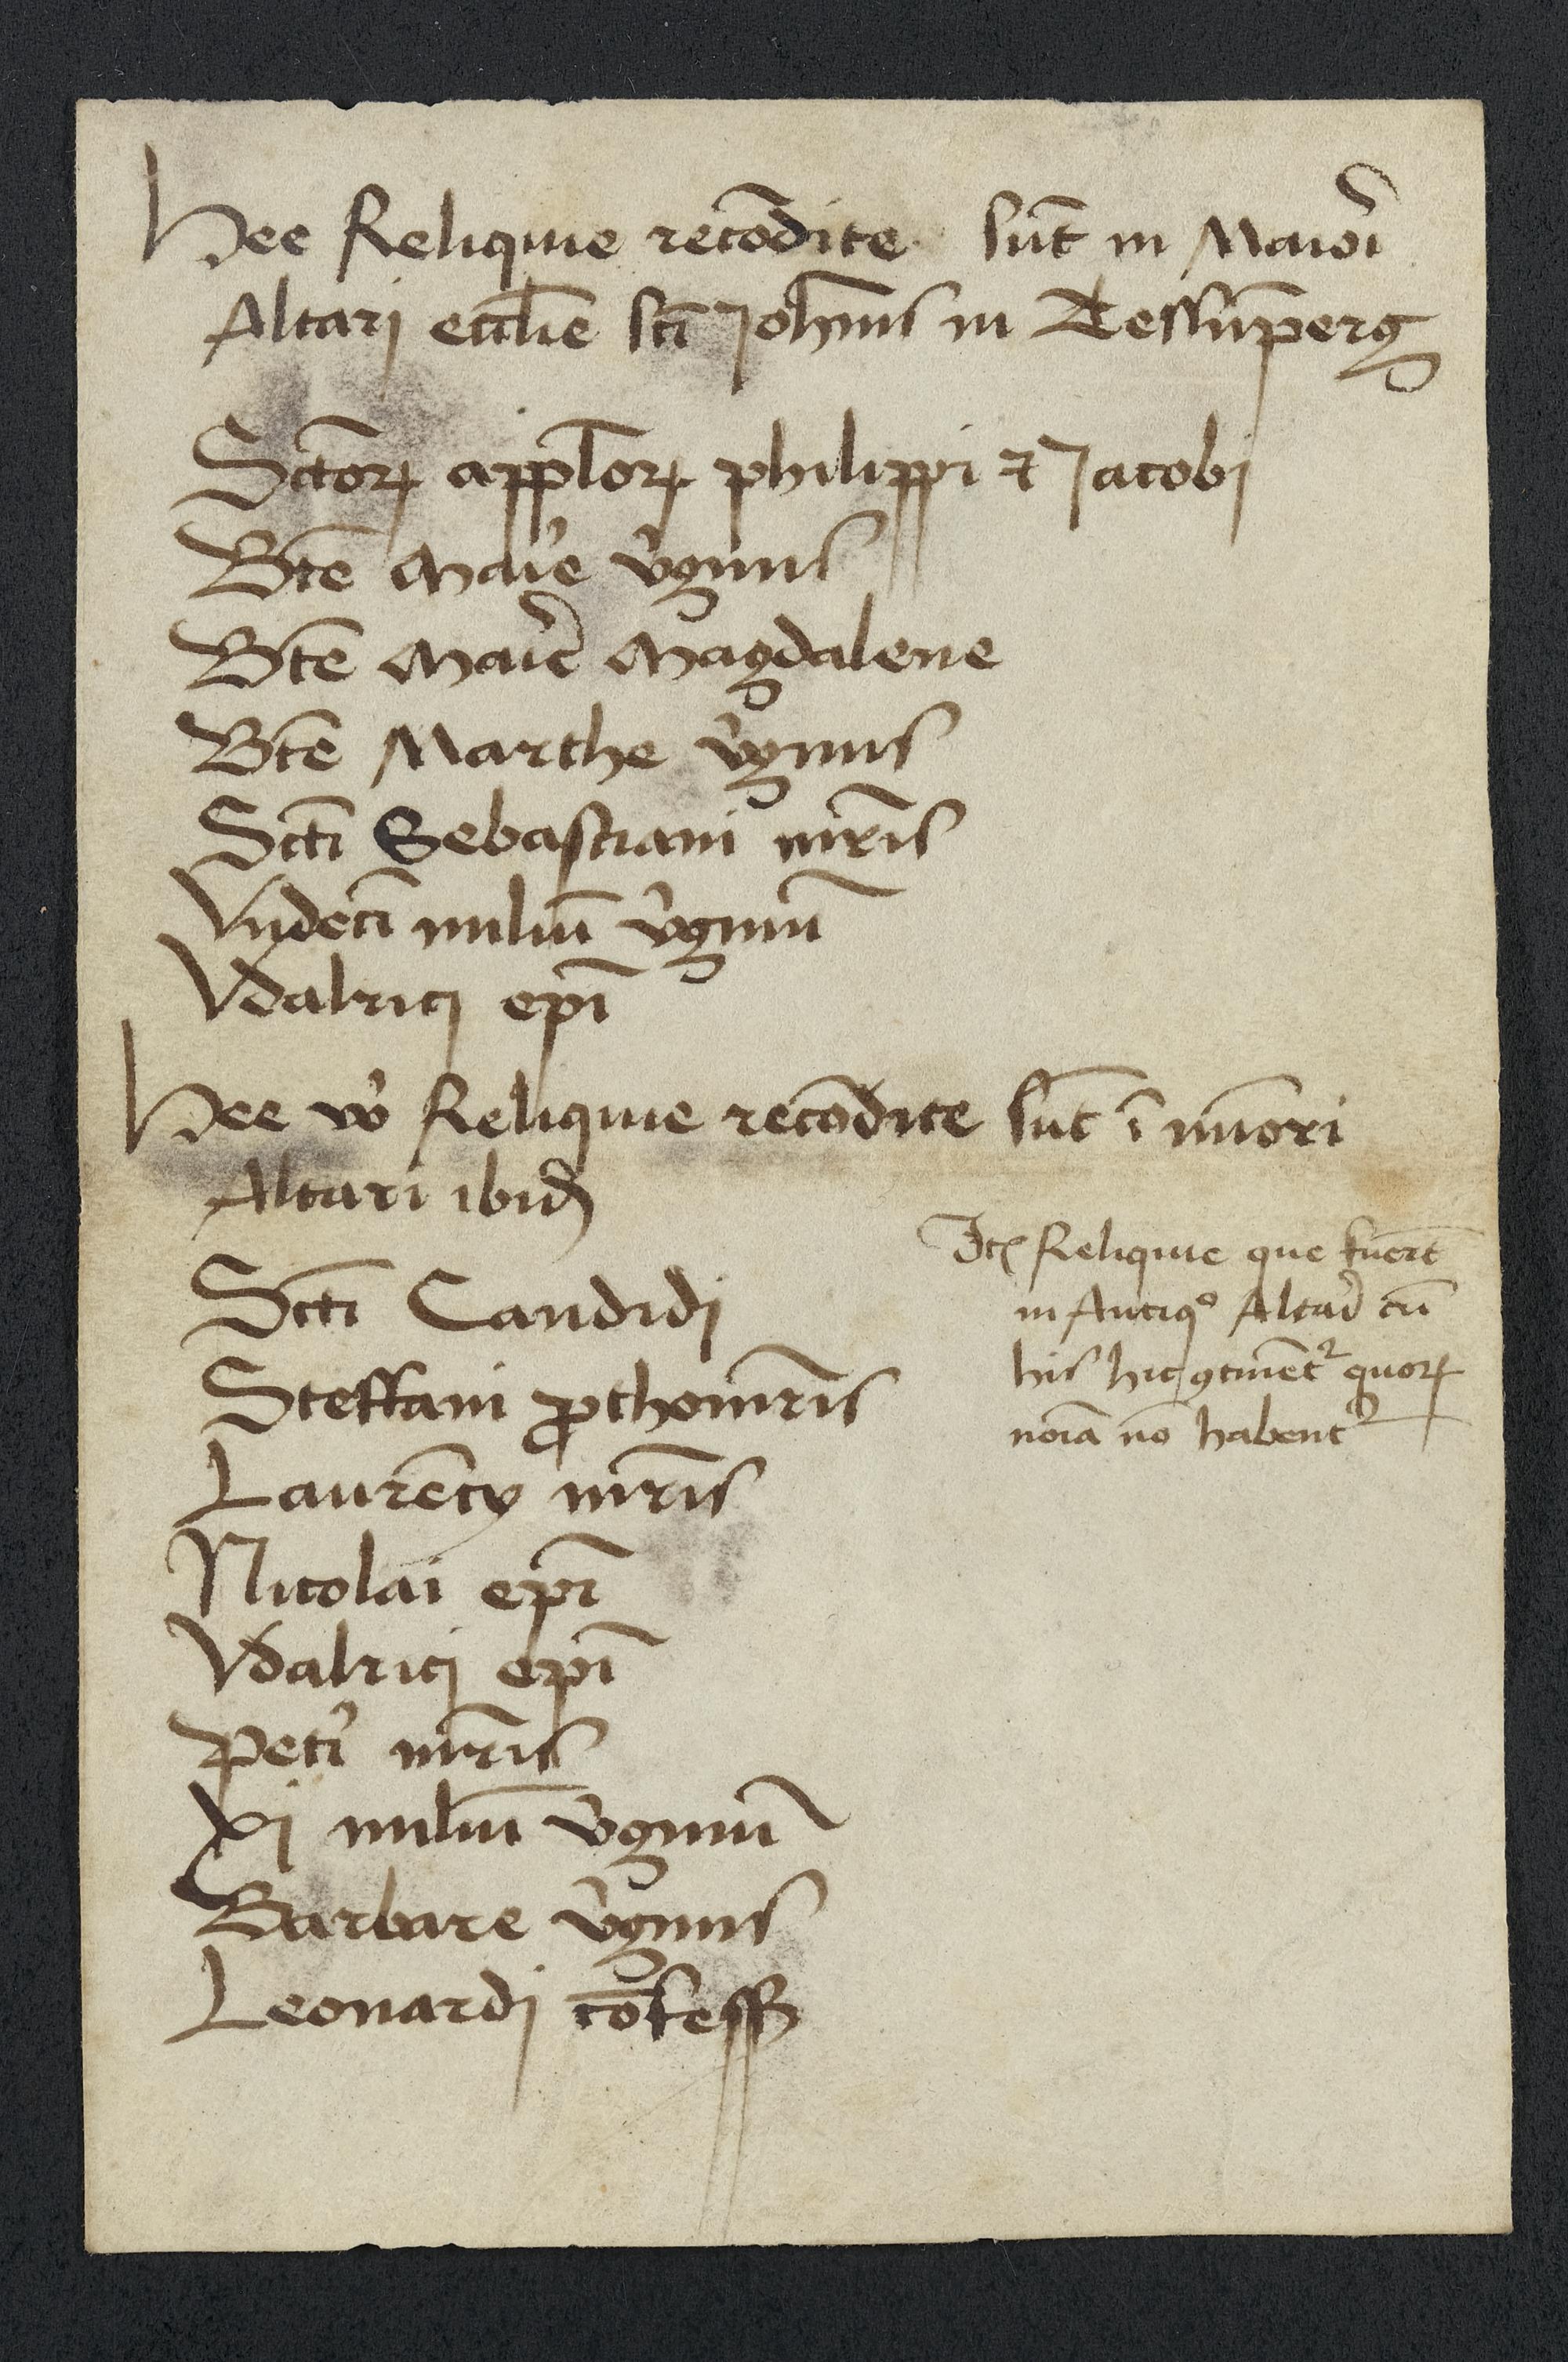 Hee Reliquie reco̅dite su̅t in Maiori
Altari eccl̅ie sc̅ti Joha̅nis in Tessu̅perg
Sctoꝝ appl̅oꝝ philippi ⁊ Jacobi
Bte̅ Marie v̕ginis
Bte̅ Marie Magdalene
Bte̅ Marthe v̕ginis
Sct̅i Sebastiani mr̅is
Vndeci̅ miliu̅ v̕ginu̅
Vdalrici ep̅i
Hee vo̕ Reliquie reco̅dite su̅t i̅ mi̅ori
Altari ibid̅
Sct̅i Candidi
Steffani ꝓthomr̅is
Laure̅cy mr̅is
Nicolai ep̅i
Vdalrici ep̅i
Pet̕i mr̅is
xj miliu̅ v̕ginu̅
Barbare v̕ginis
Leonardi co̅fess̅
Ite̅ Reliquie que fuer̅t
in Antiqº Altari cu̅
his hic ꝯtinent᷑ quoꝝ
no̅i̅a no̅ habent᷑